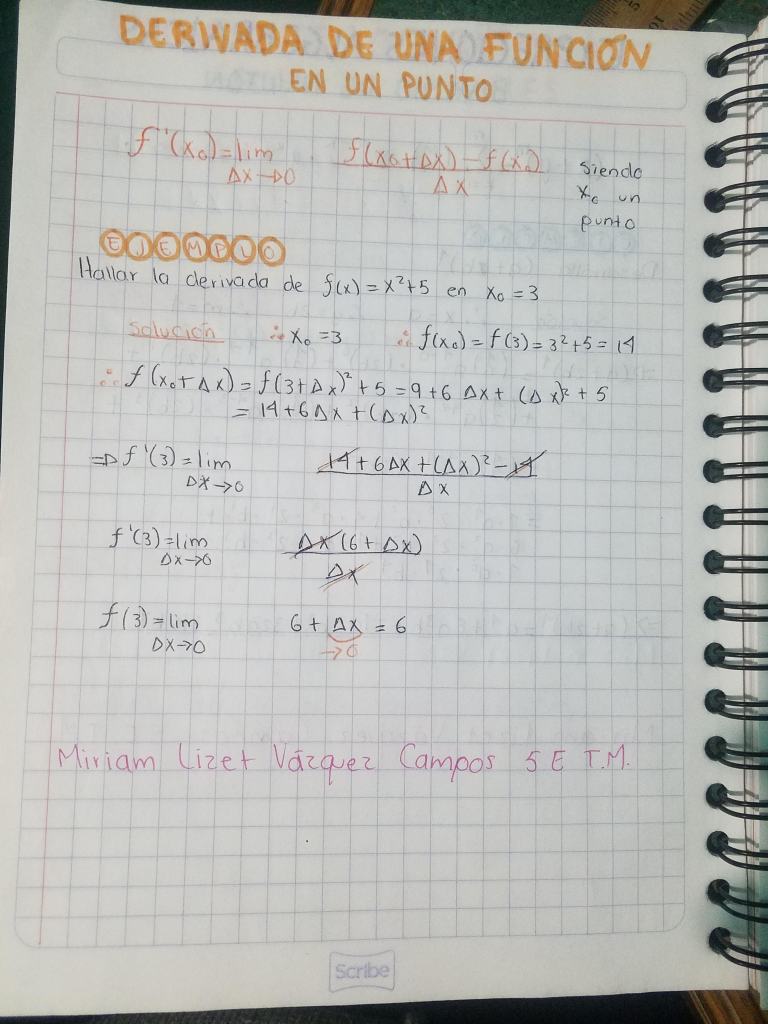 DERIVADA DE UNA FUNCIÓN
EN UN PUNTO
f'(x₀) = lim Δx→0 f(x₀+Δx) - f(x₀) / Δx siendo x₀ un punto
EJEMPLO
Hallar la derivada de f(x) = x²+5 en x₀ = 3
Solución ∴ x₀ = 3 ∴ f(x₀) = f(3) = 3²+5 = 14
∴ f(x₀+Δx) = f(3+Δx)² + 5 = 9+6 Δx + (Δx)² + 5
= 14+6Δx + (Δx)²
⇒ f'(3) = lim Δx→0 14 + 6Δx + (Δx)² - 14 / Δx
f'(3) = lim Δx→0 Δx (6 + Δx) / Δx
f(3) = lim Δx→0 6 + Δx = 6
→0
Miriam Lizet Vázquez Campos 5 E T.M.
Scribe